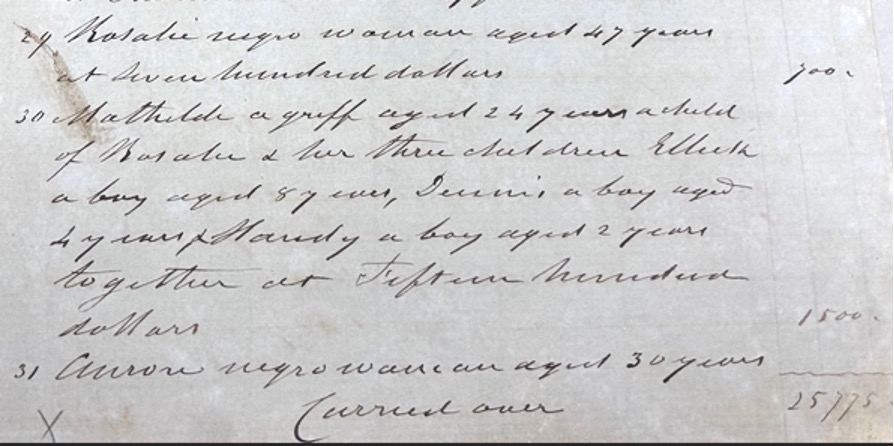 29 Rosalie negro woman aged 47 years
at Seven hundred dollars 700.
30 Mathilde a griff aged 24 years a child
of Rosalie & her three children Elleck
a boy aged 8 years, Dennis a boy aged
4 years & Handy a boy aged 2 years
together at Fifteen hundred
dollars 1500.
31 Aurore negro woman aged 30 years
Carried over 25775
X